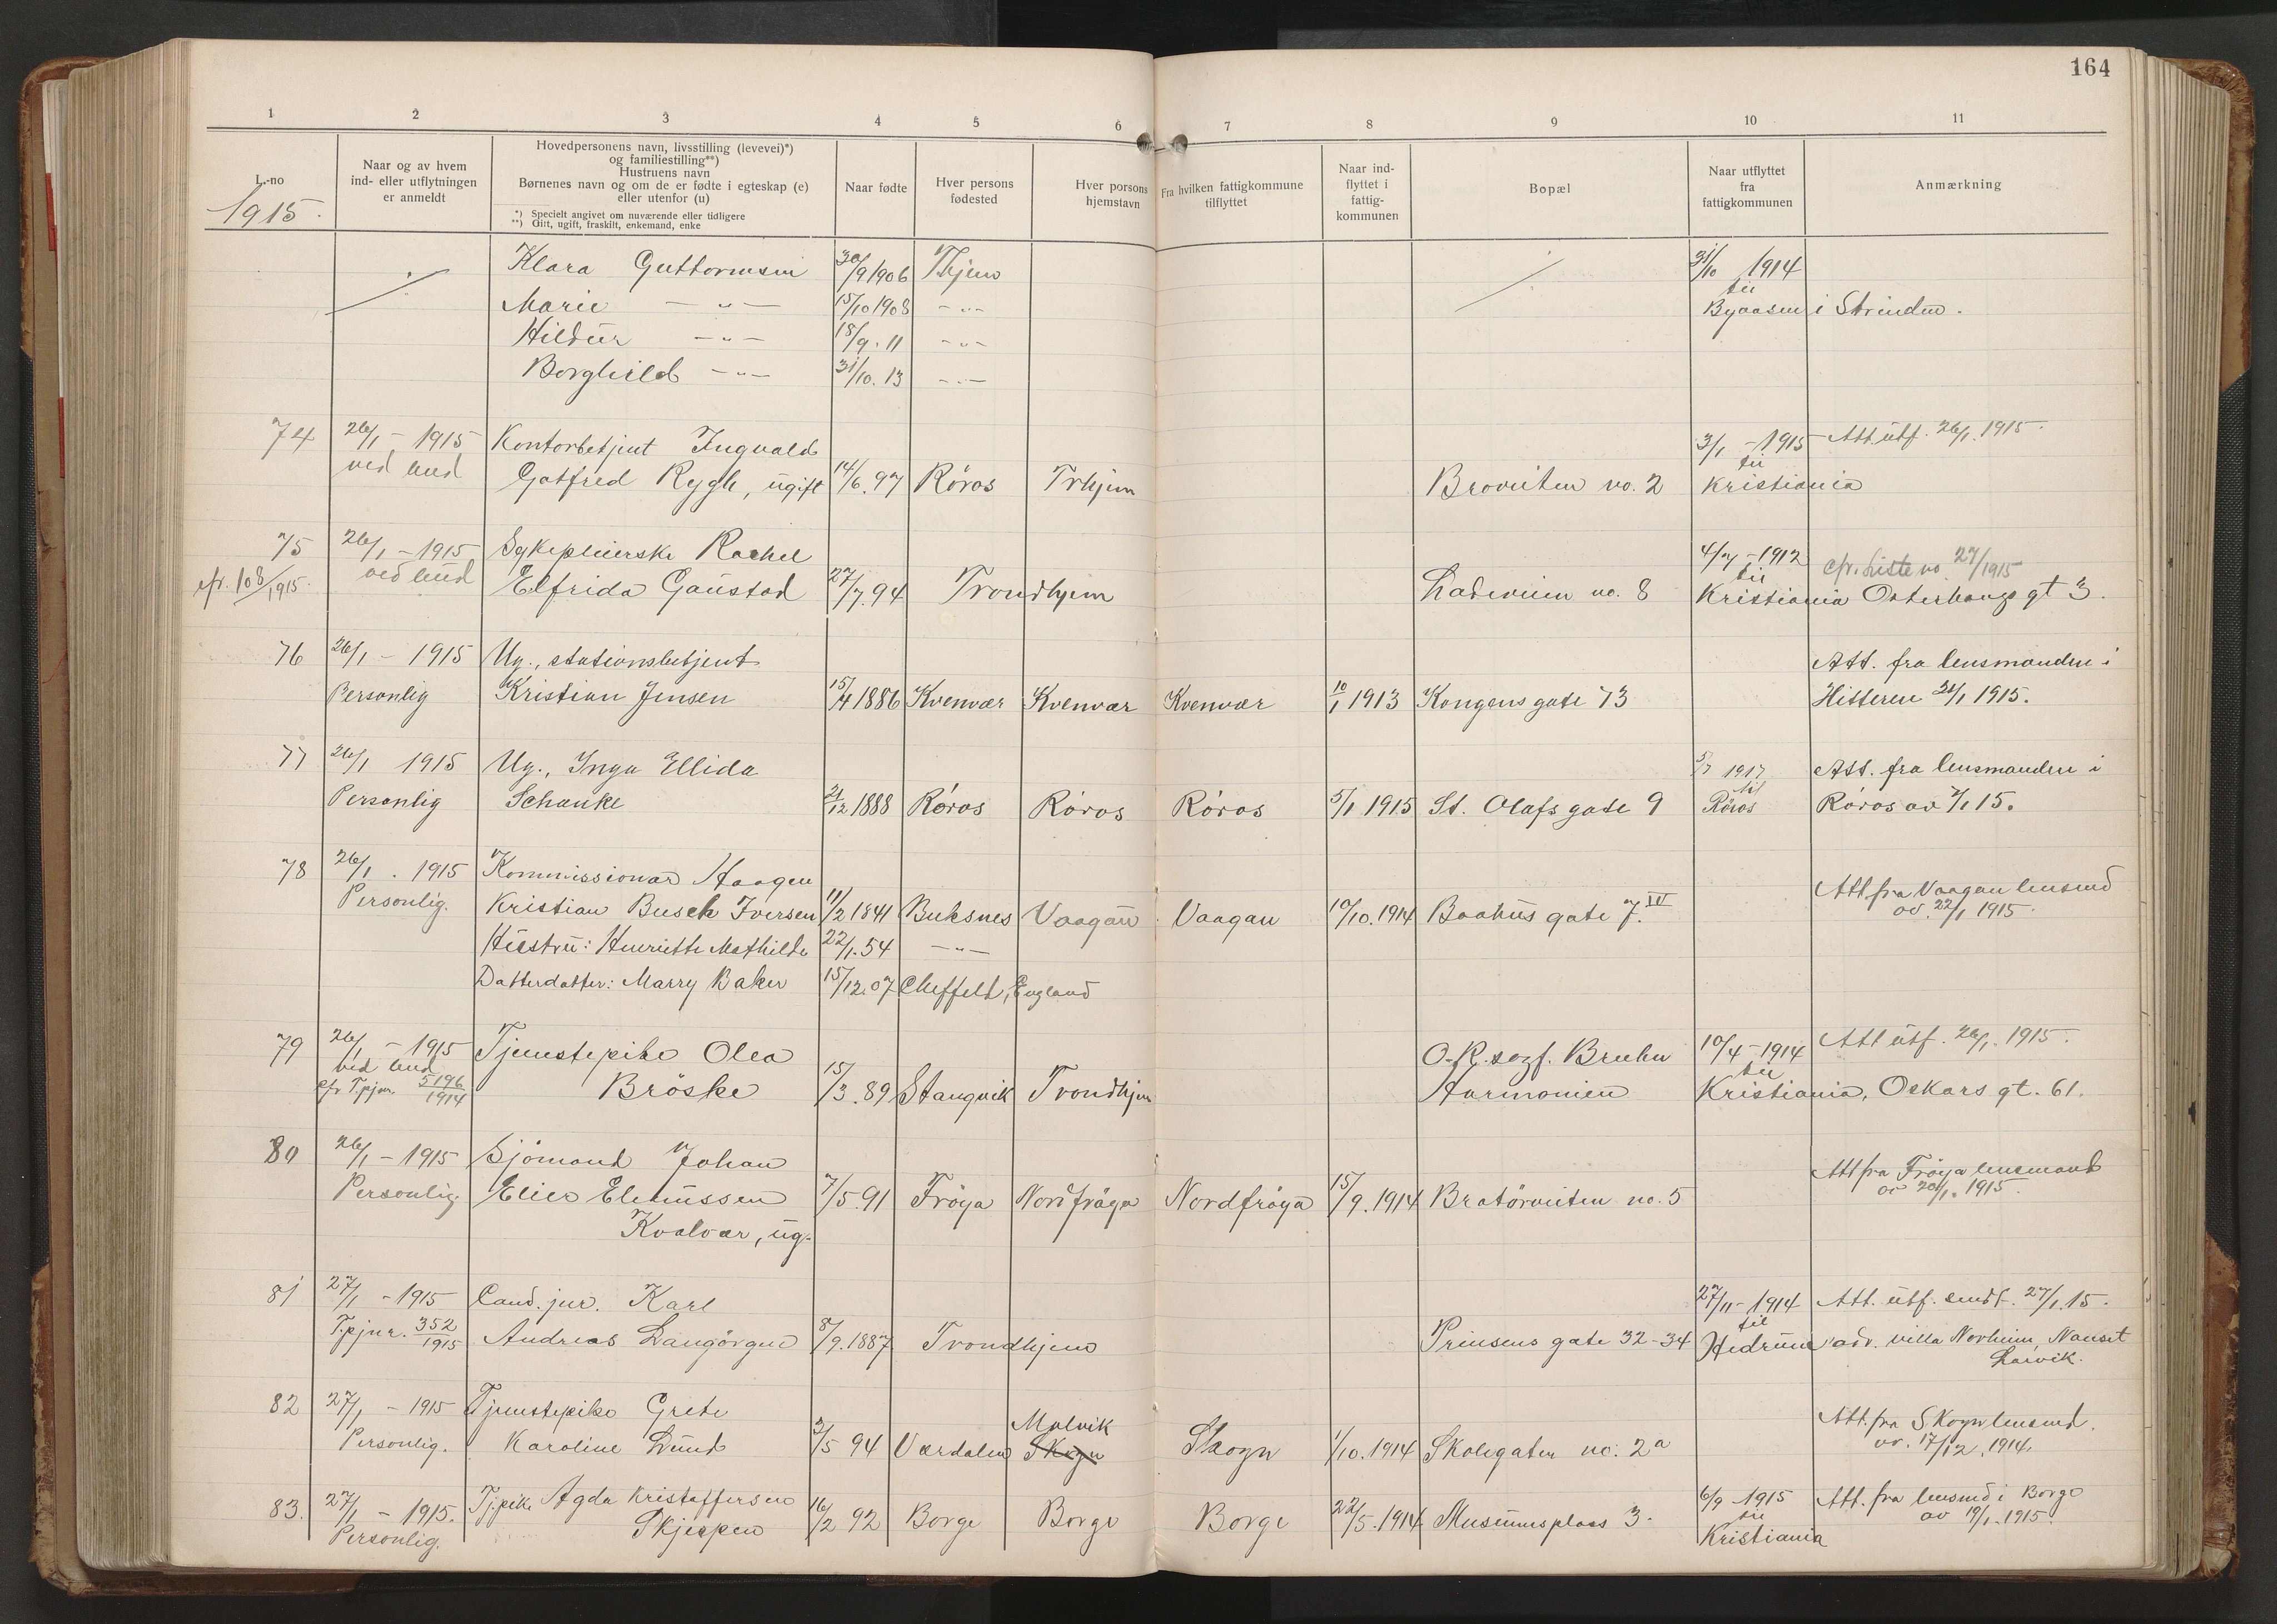 164
1 2 3 4 5 6 7 8 9 10 11
L.-no
1915.
Naar og av hvem
ind- eller utflytningen
er anmeldt
Hovedpersonens navn, livsstilling (levevei)*)
og familiestilling**)
Hustruens navn
Børnenes navn og om de er fødte i egteskap (e)
eller utenfor (u)
*) Specielt angivet om nuværende eller tidligere
**) Gift, ugift, fraskilt, enkemand, enke
Naar fødte
Hver persons
fødested
Hver persons
hjemstavn
Fra hvilken fattigkommune
tilflyttet
Naar ind-
flyttet i
fattig-
kommunen
Bopæl
Naar utflyttet
fra
fattigkommunen
Anmærkning
Klara Guttormsen 30/9 1906 Thjem 31/10 1914
til
Marie —"— 15/10 1908 -"- Byaasen i Strinden.
Hildur —"— 18/9.11 -"-
Borghild -"- 31/10.13 -"-
74 26/1 - 1915 Kontorbetjent Ingvald 3/1 - 1915 Att. utf. 26/1.1915.
ved lmd til
Gotfred Rygh, ugift 14/6.97 Röros Trhjem Broveiten no. 2 Kristiania
75 26/1 - 1915 Sykepleierske Rachel 4/7 - 1912 cfr. Liste no. 27/1915
cfr. 108/1915. ved lmd til
Elfrida Gaustad 27/7.94 Trondhjem Ladeveien no. 8 Kristiania Osterhaugs gt 3.
76 26/1 - 1915 Ug., stationsbetjent Att. fra lensmanden i
Personlig Kristian Jensen 15/4 1886 Kvenvær Kvenvær Kvenvær 10/1 1913 Kongens gate 73 Hitteren 21/1 1915.
77 26/1 1915 Ug., Inga Ellida 5/7 1917 Att. fra lensmanden i
til
Personlig Schanke 21/12 1888 Röros Röros Röros 5/1 1915 St. Olafs gate 9 Röros Röros av 7/1 15.
78 26/1. 1915 Kommissionær Haagen Att fra Vaagan lensmd
Personlig. Kristian Busch Iversen 11/2 1841 Buksnes Vaagan Vaagan 10/10.1914 Baahus gate 7. IV av. 22/1 1915.
Hustru: Henriette Mathilde 22/1.54 —"—
Datterdatter: Marry Baker 15/12.07 Cheffeld, England
79 26/1 - 1915 Tjenestepike Olea O.R.sagf. Bruhn 10/4 - 1914 Att utf. 26/1.1915.
ved lmd til
cfr Tpjnr. 5196/1914 Bröske 15/3.89 Stangvik Trondhjem Harmonien Kristiania, Oskars gt. 61.
80 26/1 - 1915 Sjömand Johan Att fra Fröya lensmand
Personlig. Elias Elevussen 7/5.91 Fröya Nordfröya Nordfröya 15/9.1914 Bratörveiten no. 5 av 20/1.1915.
Kvalvær, ug.
81 27/1 - 1915 Cand. jur. Karl 27/11 - 1914 Att. utf. sendt. 27/1.15.
til
Tpjnr. 352/1915 Andreas Langörgen 8/9.1887 Trondhjem Prinsens gate 32-34 Hedrum adr. villa Norheim, Nanset
Larvik.
82 27/1 - 1915 Tjenestepike Grete Att. fra Skogn lensmd.
Malvik
Personlig. Karoline Lund 3/5 94 Værdalen Skogn Skogn 1/10.1914 Skolegaten no. 2a av. 17/12.1914.
83. 27/1 - 1915. Tj.pike Agda Kristoffersen 16/2 92 Borge Borge Borge 22/5.1914 Museumsplass 3. 6/9 1915 Att. fra lensmd i Borge
til
Personlig. Skjespen Kristiania av 19/1.1915.